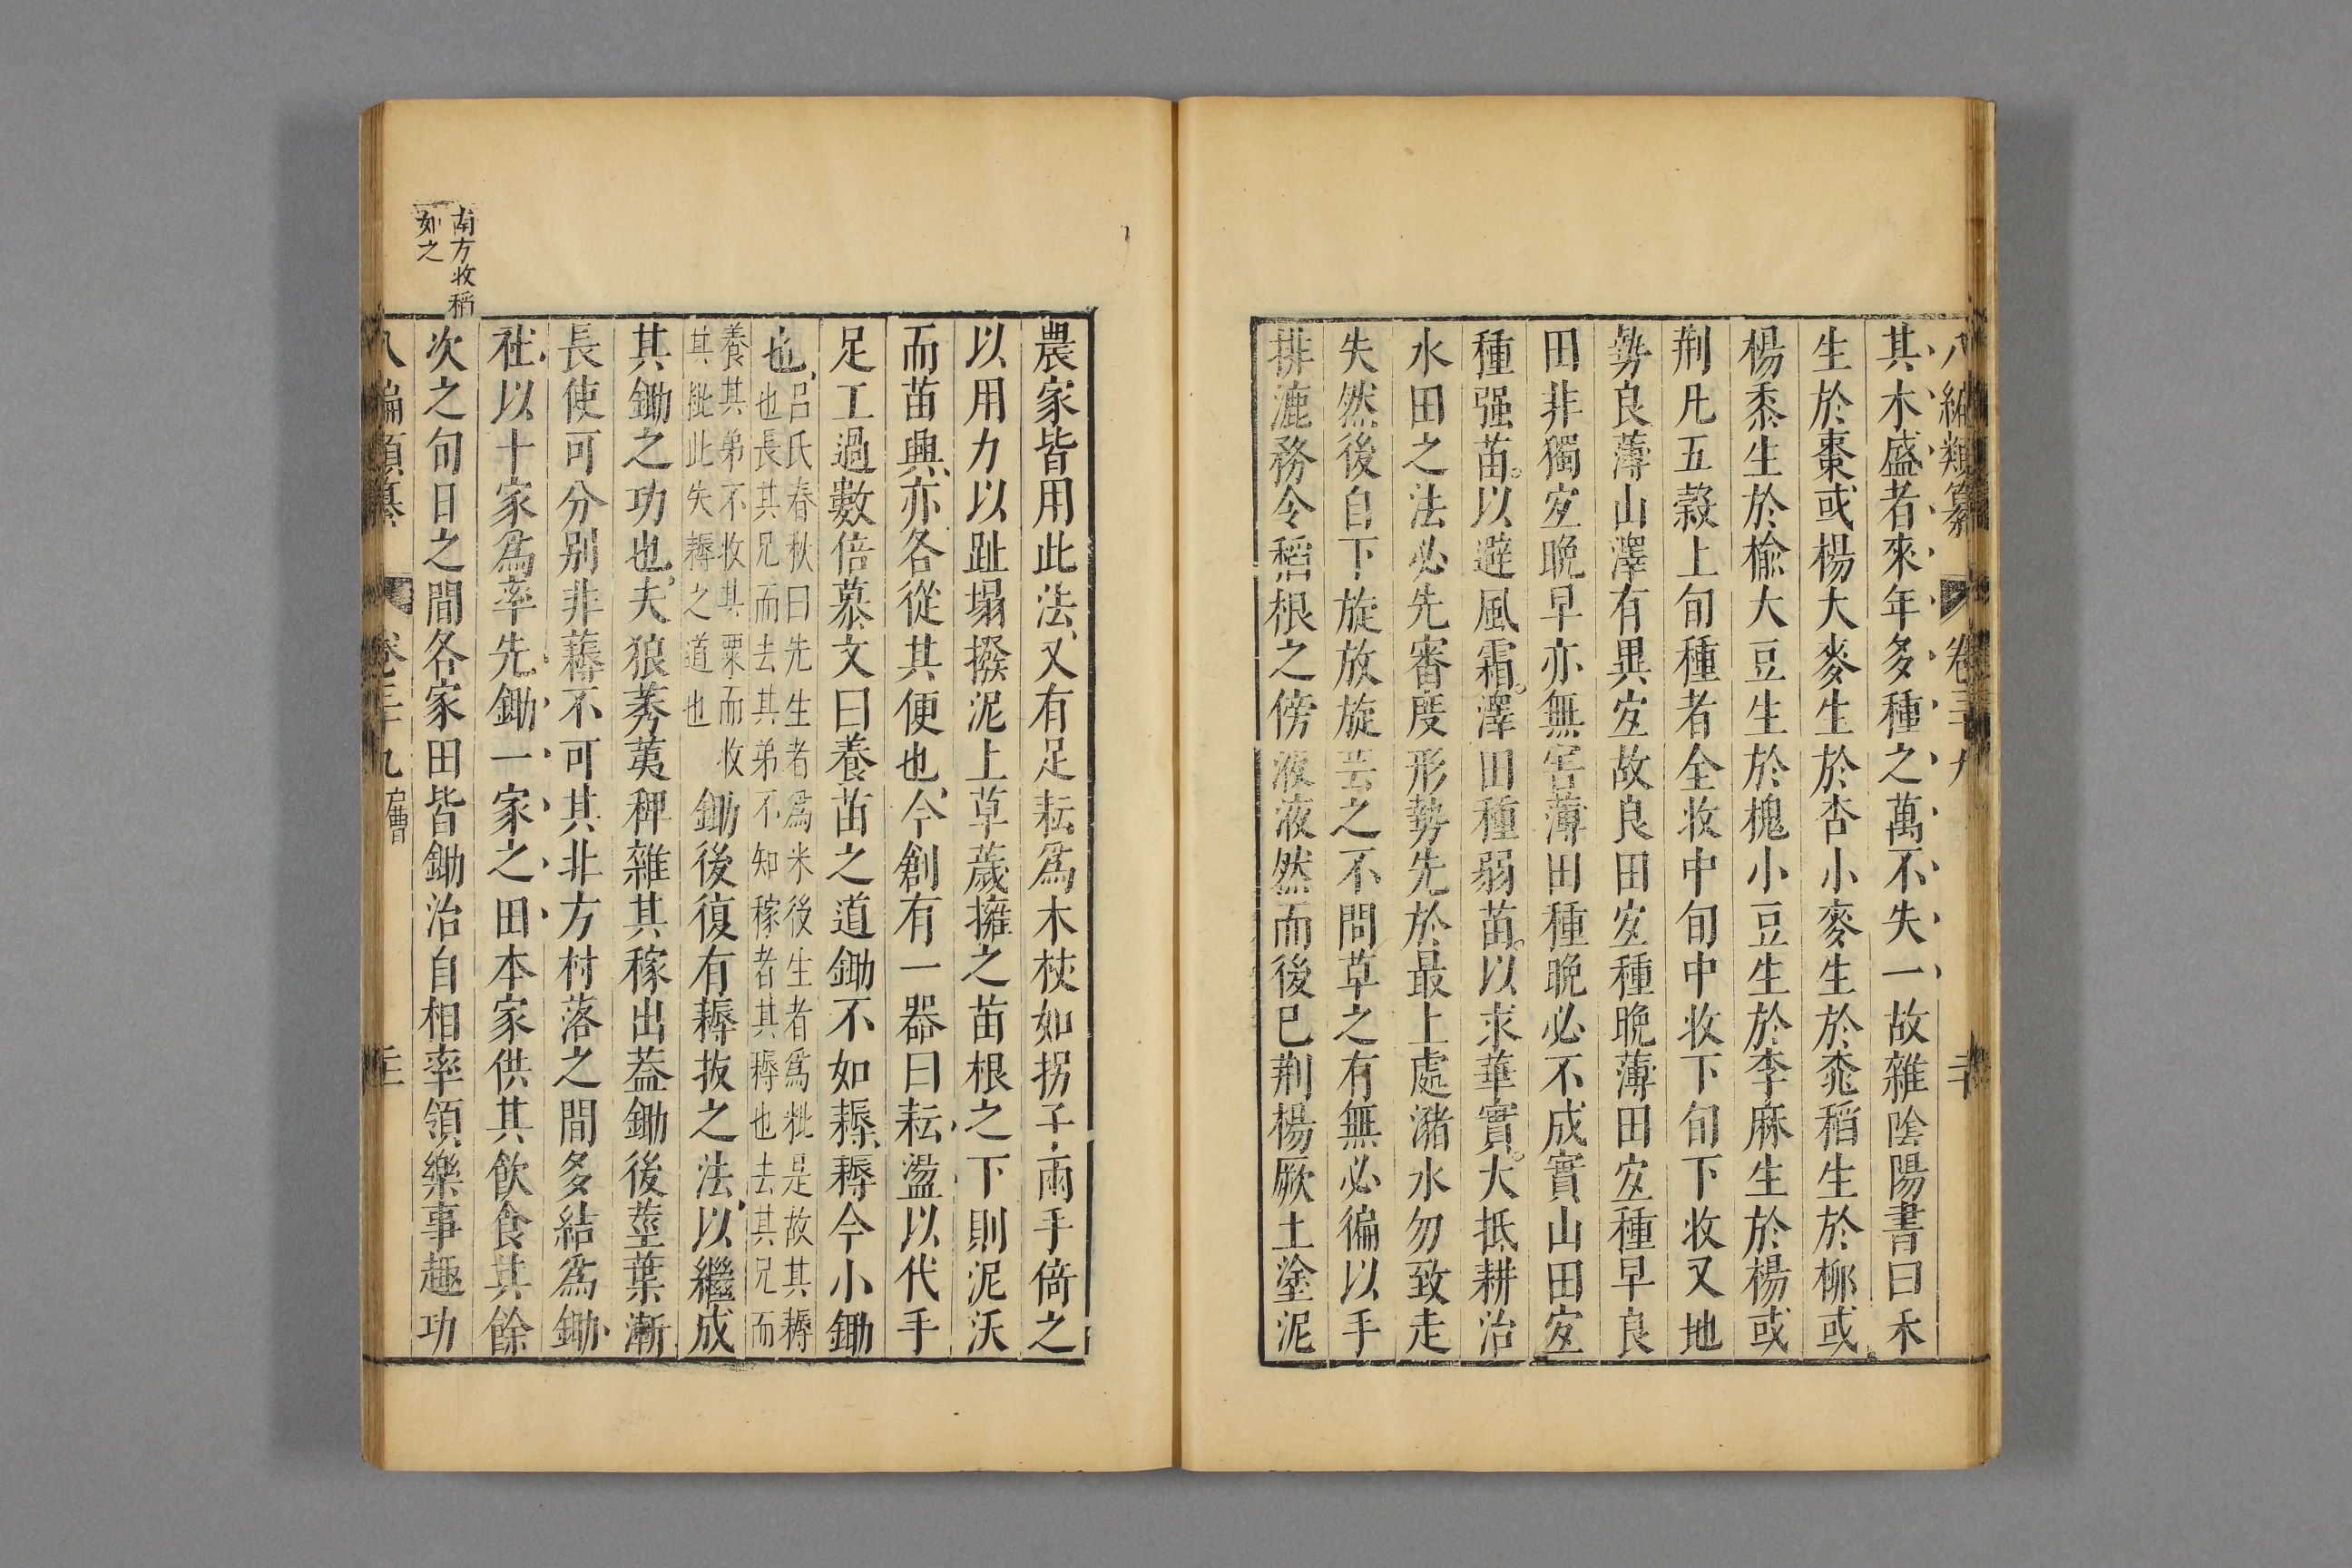 八編類纂 卷三十九 二十
其木盛者來年多種之萬不失一故雜陰陽書曰禾
生於棗或楊大麥生於杏小麥生於桃稻生於柳或
楊黍生於榆大豆生於槐小豆生於李麻生於楊或
荆凡五穀上旬種者全收中旬中收下旬下收又地
勢良薄山澤有異宐故良田宐種晩薄田宐種早良
田非獨宐晩早亦無害薄田種晩必不成實山田宐
種强苗以避風霜澤田種弱苗以求華實大抵耕治
水田之法必先審度形勢先於最上處瀦水勿致走
失然後自下旋放旋芸之不問草之有無必徧以手
排漉務令稻根之傍液液然而後已荆楊厥土塗泥
農家皆用此法又有足耘爲木杖如拐子兩手倚之
以用力以趾塌撥泥上草薉擁之苗根之下則泥沃
而苗興亦各從其便也今創有一器曰耘盪以代手
足工過數倍慕文曰養苗之道鋤不如耨耨今小鋤
也呂氏春秋曰先生者爲米後生者爲粃是故其耨
也長其兄而去其弟不知稼者其耨也去其兄而
養其弟不收其粟而收
其粃此失耨之道也鋤後復有耨拔之法以繼成
其鋤之功也夫狼莠荑稗雜其稼出葢鋤後莖葉漸
長使可分别非薅不可其非方村落之間多結爲鋤
社以十家爲率先鋤一家之田本家供其飲食其餘
次之旬日之間各家田皆鋤治自相率領樂事趣功
南方收稻
如之
八編類纂 卷三十九